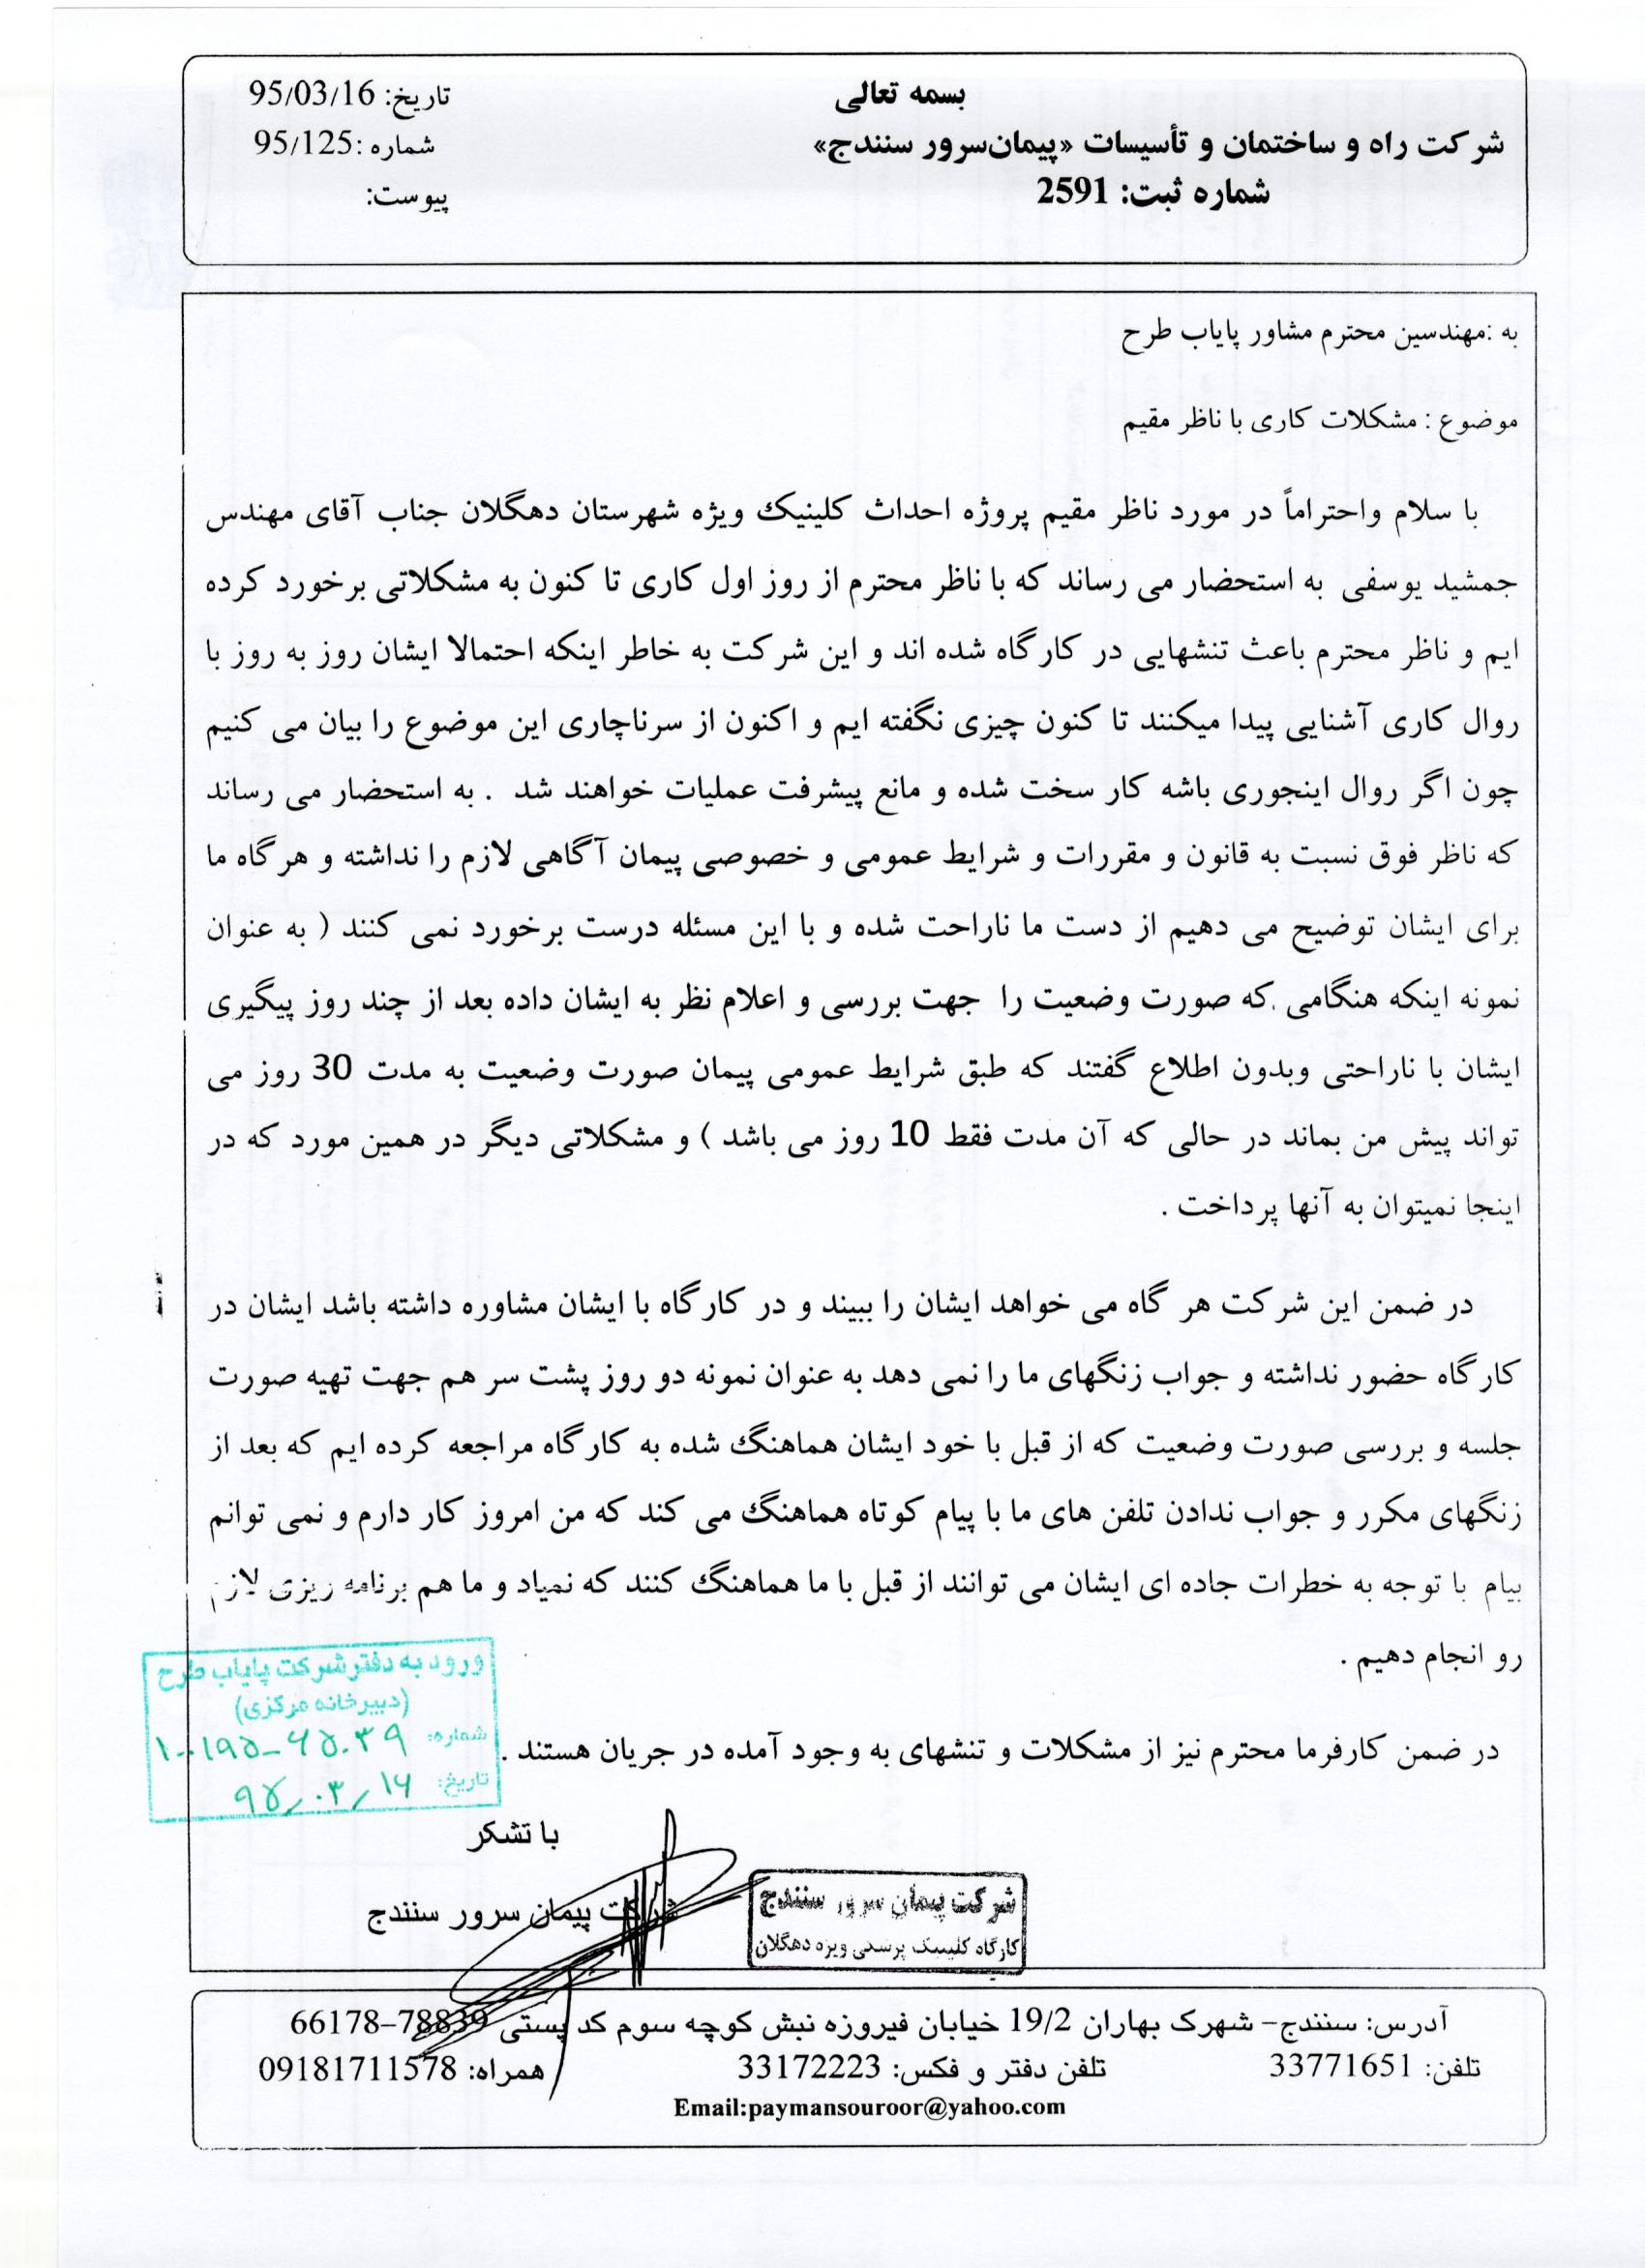 بسمه تعالی
شرکت راه و ساختمان و تأسیسات «پیمان‌سرور سنندج»
شماره ثبت: 2591
تاریخ: 95/03/16
شماره :95/125
پیوست:
به :مهندسین محترم مشاور پایاب طرح
موضوع : مشکلات کاری با ناظر مقیم
با سلام واحتراماً در مورد ناظر مقیم پروژه احداث کلینیک ویژه شهرستان دهگلان جناب آقای مهندس
جمشید یوسفی به استحضار می رساند که با ناظر محترم از روز اول کاری تا کنون به مشکلاتی برخورد کرده
ایم و ناظر محترم باعث تنشهایی در کارگاه شده اند و این شرکت به خاطر اینکه احتمالا ایشان روز به روز با
روال کاری آشنایی پیدا میکنند تا کنون چیزی نگفته ایم و اکنون از سرناچاری این موضوع را بیان می کنیم
چون اگر روال اینجوری باشه کار سخت شده و مانع پیشرفت عملیات خواهند شد . به استحضار می رساند
که ناظر فوق نسبت به قانون و مقررات و شرایط عمومی و خصوصی پیمان آگاهی لازم را نداشته و هرگاه ما
برای ایشان توضیح می دهیم از دست ما ناراحت شده و با این مسئله درست برخورد نمی کنند ( به عنوان
نمونه اینکه هنگامی که صورت وضعیت را جهت بررسی و اعلام نظر به ایشان داده بعد از چند روز پیگیری
ایشان با ناراحتی وبدون اطلاع گفتند که طبق شرایط عمومی پیمان صورت وضعیت به مدت 30 روز می
تواند پیش من بماند در حالی که آن مدت فقط 10 روز می باشد ) و مشکلاتی دیگر در همین مورد که در
اینجا نمیتوان به آنها پرداخت .
در ضمن این شرکت هر گاه می خواهد ایشان را ببیند و در کارگاه با ایشان مشاوره داشته باشد ایشان در
کارگاه حضور نداشته و جواب زنگهای ما را نمی دهد به عنوان نمونه دو روز پشت سر هم جهت تهیه صورت
جلسه و بررسی صورت وضعیت که از قبل با خود ایشان هماهنگ شده به کارگاه مراجعه کرده ایم که بعد از
زنگهای مکرر و جواب ندادن تلفن های ما با پیام کوتاه هماهنگ می کند که من امروز کار دارم و نمی توانم
بیام با توجه به خطرات جاده ای ایشان می توانند از قبل با ما هماهنگ کنند که نمیاد و ما هم برنامه ریزی لازم
رو انجام دهیم .
در ضمن کارفرما محترم نیز از مشکلات و تنشهای به وجود آمده در جریان هستند .
ورود به دفتر شرکت پایاب طرح
(دبیرخانه مرکزی)
شماره: ۱۰۰۱۹۵-۶۵۰۳۹
تاریخ: ۹۵/۰۳/۱۶
با تشکر
شرکت پیمان سرور سنندج
شرکت پیمان سرور سنندج
کارگاه کلینیک پزشکی ویژه دهگلان
آدرس: سنندج– شهرک بهاران 19/2 خیابان فیروزه نبش کوچه سوم کد پستی 78839–66178
تلفن: 33771651 تلفن دفتر و فکس: 33172223 همراه: 09181711578
Email:paymansouroor@yahoo.com